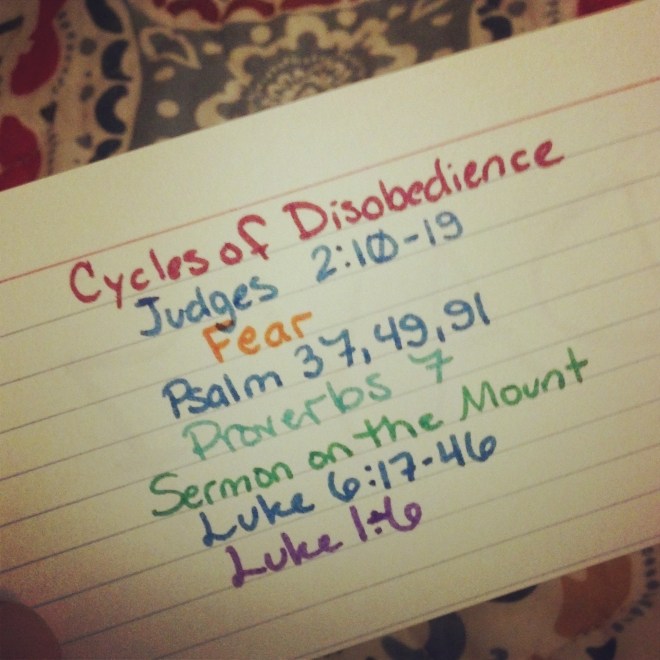 Cycles of Disobedience
Judges 2:10-19
Fear
Psalm 37, 49, 91
Proverbs 7
Sermon on the Mount
Luke 6:17-46
Luke 1:6